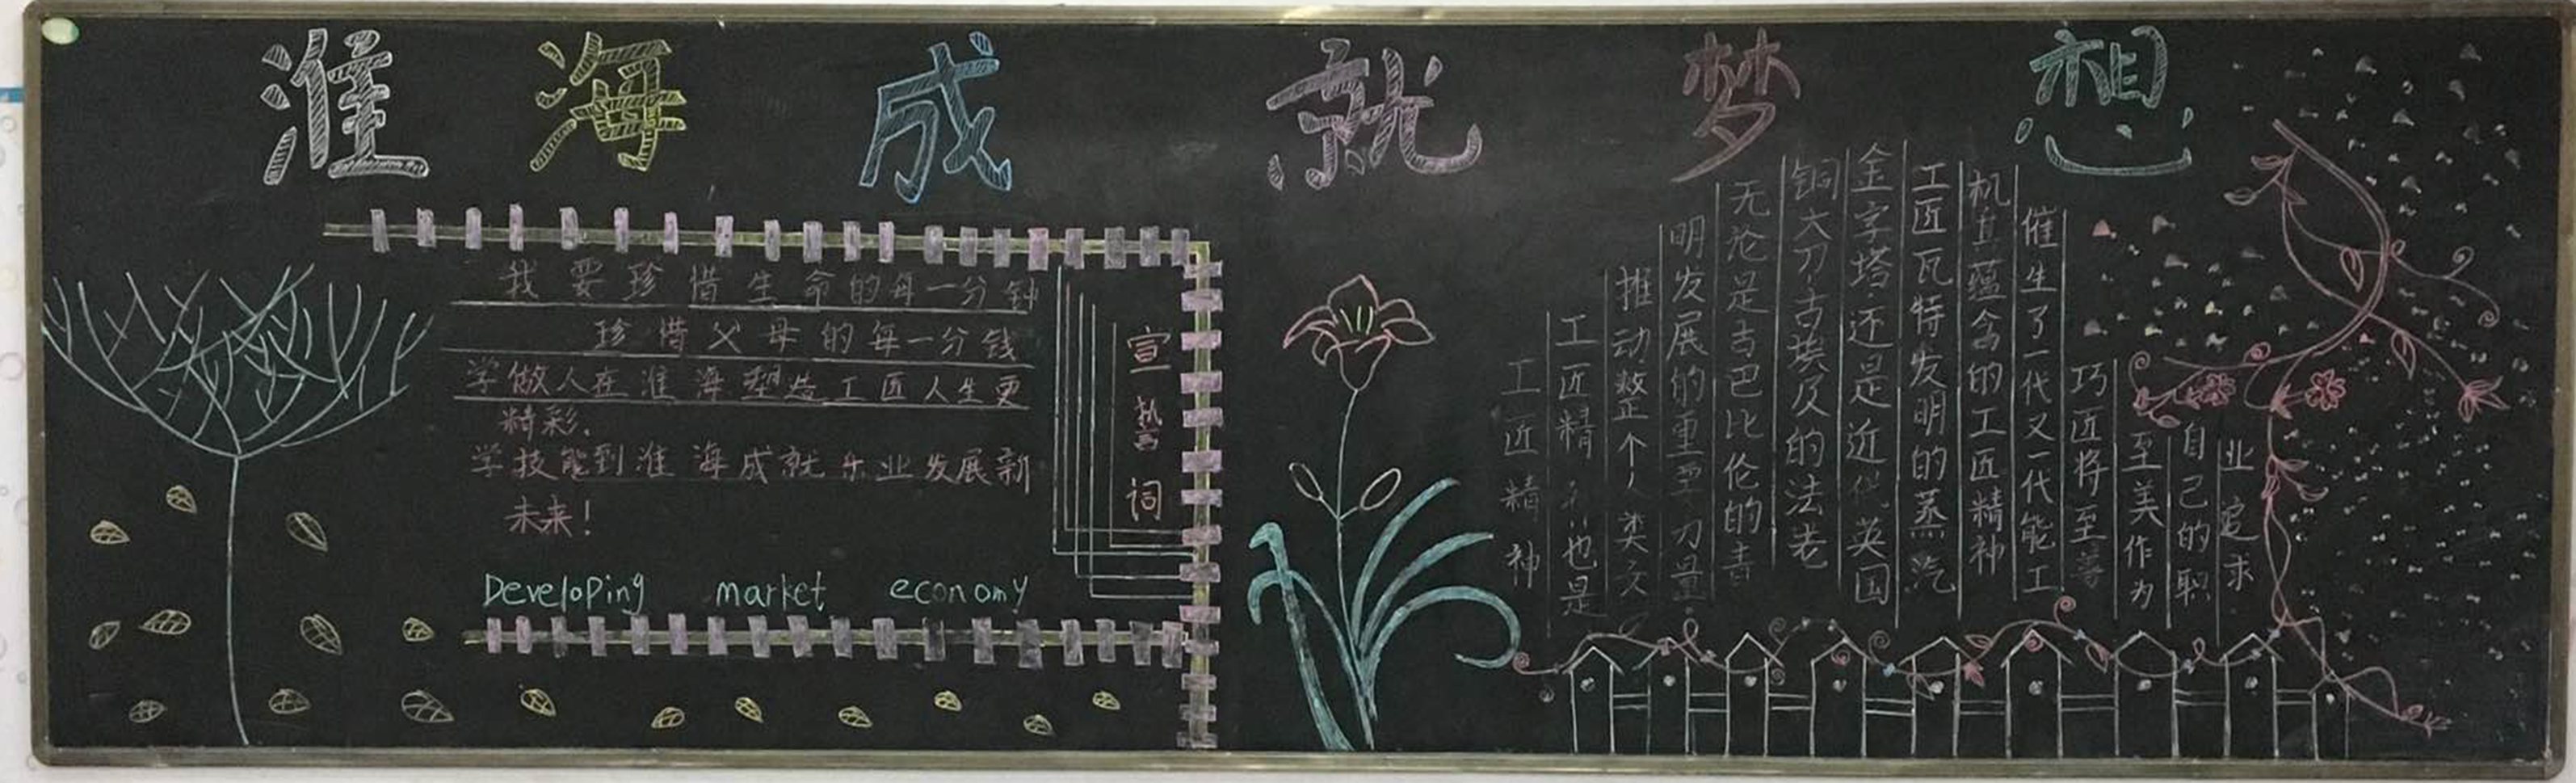 淮海成就梦想
我要珍惜生命的每一分钟
珍惜父母的每一分钱
学做人在淮海塑造工匠人生更
精彩.
学技能到淮海成就乐业发展新
未来!
宣誓词
Developing market economy
工匠精神
工匠精神也是
推动整个人类文
明发展的重要力量.
无论是古巴比伦的青
铜大刀、古埃及的法老
金字塔.还是近代英国
工匠瓦特发明的蒸汽
机.蕴含的工匠精神
催生了一代又一代能工
巧匠将至善
至美作为
自己的职
业追求